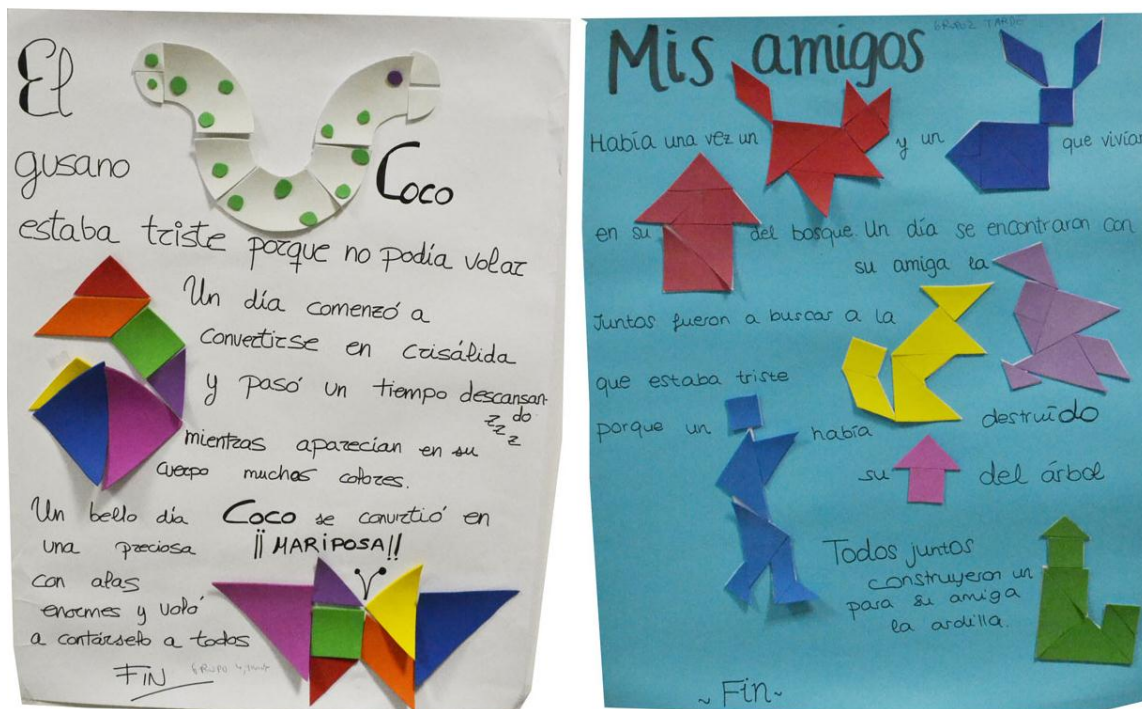 El
gusano Coco
estaba triste porque no podía volar
Un día comenzó a
convertirse en crisálida
y pasó un tiempo descansan
do
zzz
mientras aparecían en su
cuerpo muchos colores.
Un bello día Coco se convirtió en
una preciosa ¡¡MARIPOSA!!
con alas
enormes y voló
a contárselo a todos
FIN
GRUPO 4
Mis amigos
GRUPO 2 TARDE
Había una vez un y un que vivían
en su del bosque. Un día se encontraron con
su amiga la
Juntos fueron a buscar a la
que estaba triste
porque un había destruído
su del árbol
Todos juntos
construyeron un
para su amiga
la ardilla.
~ Fin ~